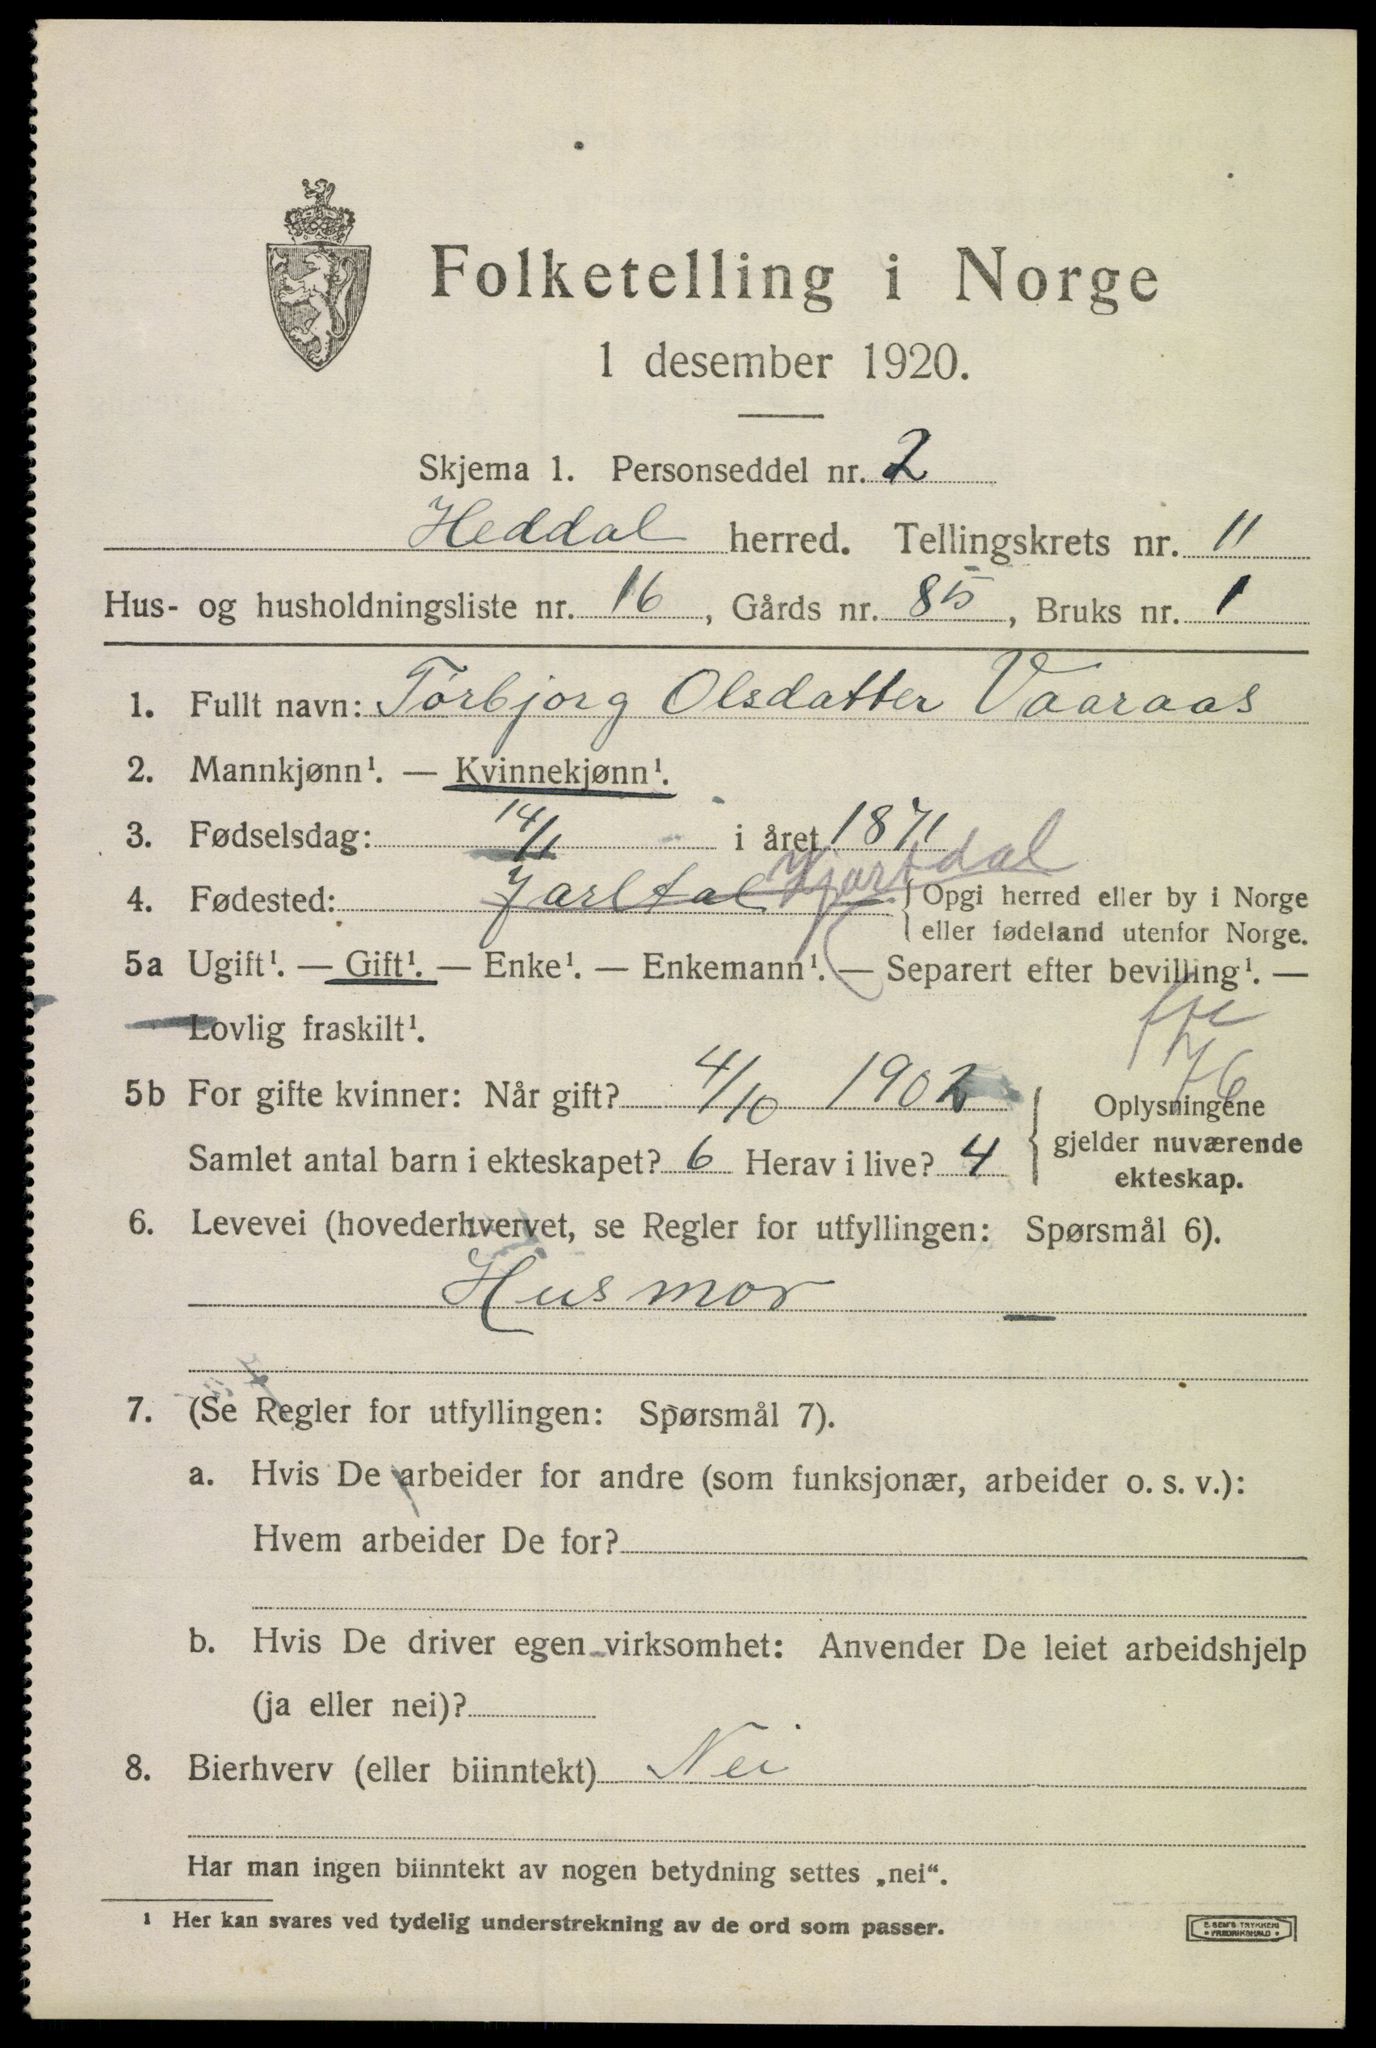 Folketelling i Norge
1 desember 1920.
Skjema 1. Personseddel nr. 2
Heddal herred. Tellingskrets nr. 11
Hus- og husholdningsliste nr. 16, Gårds nr. 85, Bruks nr. 1
1. Fullt navn: Torbjorg Olsdatter Vaaraas
2. Mannkjønn¹. — Kvinnekjønn¹.
3. Fødselsdag: 14/1 i året 1871
4. Fødested: Jarltal Hjartdal { Opgi herred eller by i Norge
eller fødeland utenfor Norge.
5a Ugift¹. — Gift¹. — Enke¹. — Enkemann¹. — Separert efter bevilling¹. —
Lovlig fraskilt¹.
76
5b For gifte kvinner: Når gift? 4/10 1902 { Oplysningene
gjelder nuværende
ekteskap.
Samlet antal barn i ekteskapet? 6 Herav i live? 4
6. Levevei (hovederhvervet, se Regler for utfyllingen: Spørsmål 6).
Husmor —
7. (Se Regler for utfyllingen: Spørsmål 7).
a. Hvis De arbeider for andre (som funksjonær, arbeider o. s. v.):
Hvem arbeider De for?
b. Hvis De driver egen virksomhet: Anvender De leiet arbeidshjelp
(ja eller nei)?
8. Bierhverv (eller biinntekt) Nei
Har man ingen biinntekt av nogen betydning settes „nei“.
¹ Her kan svares ved tydelig understrekning av de ord som passer.
E. SEM'S TRYKKERI
• FREDRIKSHALD •